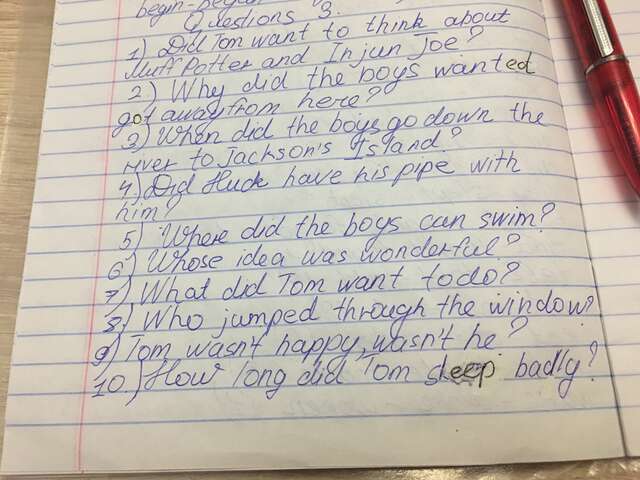 Questions
1) Did Tom want to think about
Muff Potter and Injun Joe?
2) Why did the boys wanted
got away from here?
3) When did the boys go down the
river to Jackson's Island?
4) Did Huck have his pipe with
him?
5) Where did the boys can swim?
6) Whose idea was wonderful?
7) What did Tom want to do?
8) Who jumped through the window?
9) Tom wasn't happy, wasn't he?
10) How long did Tom sleep badly?